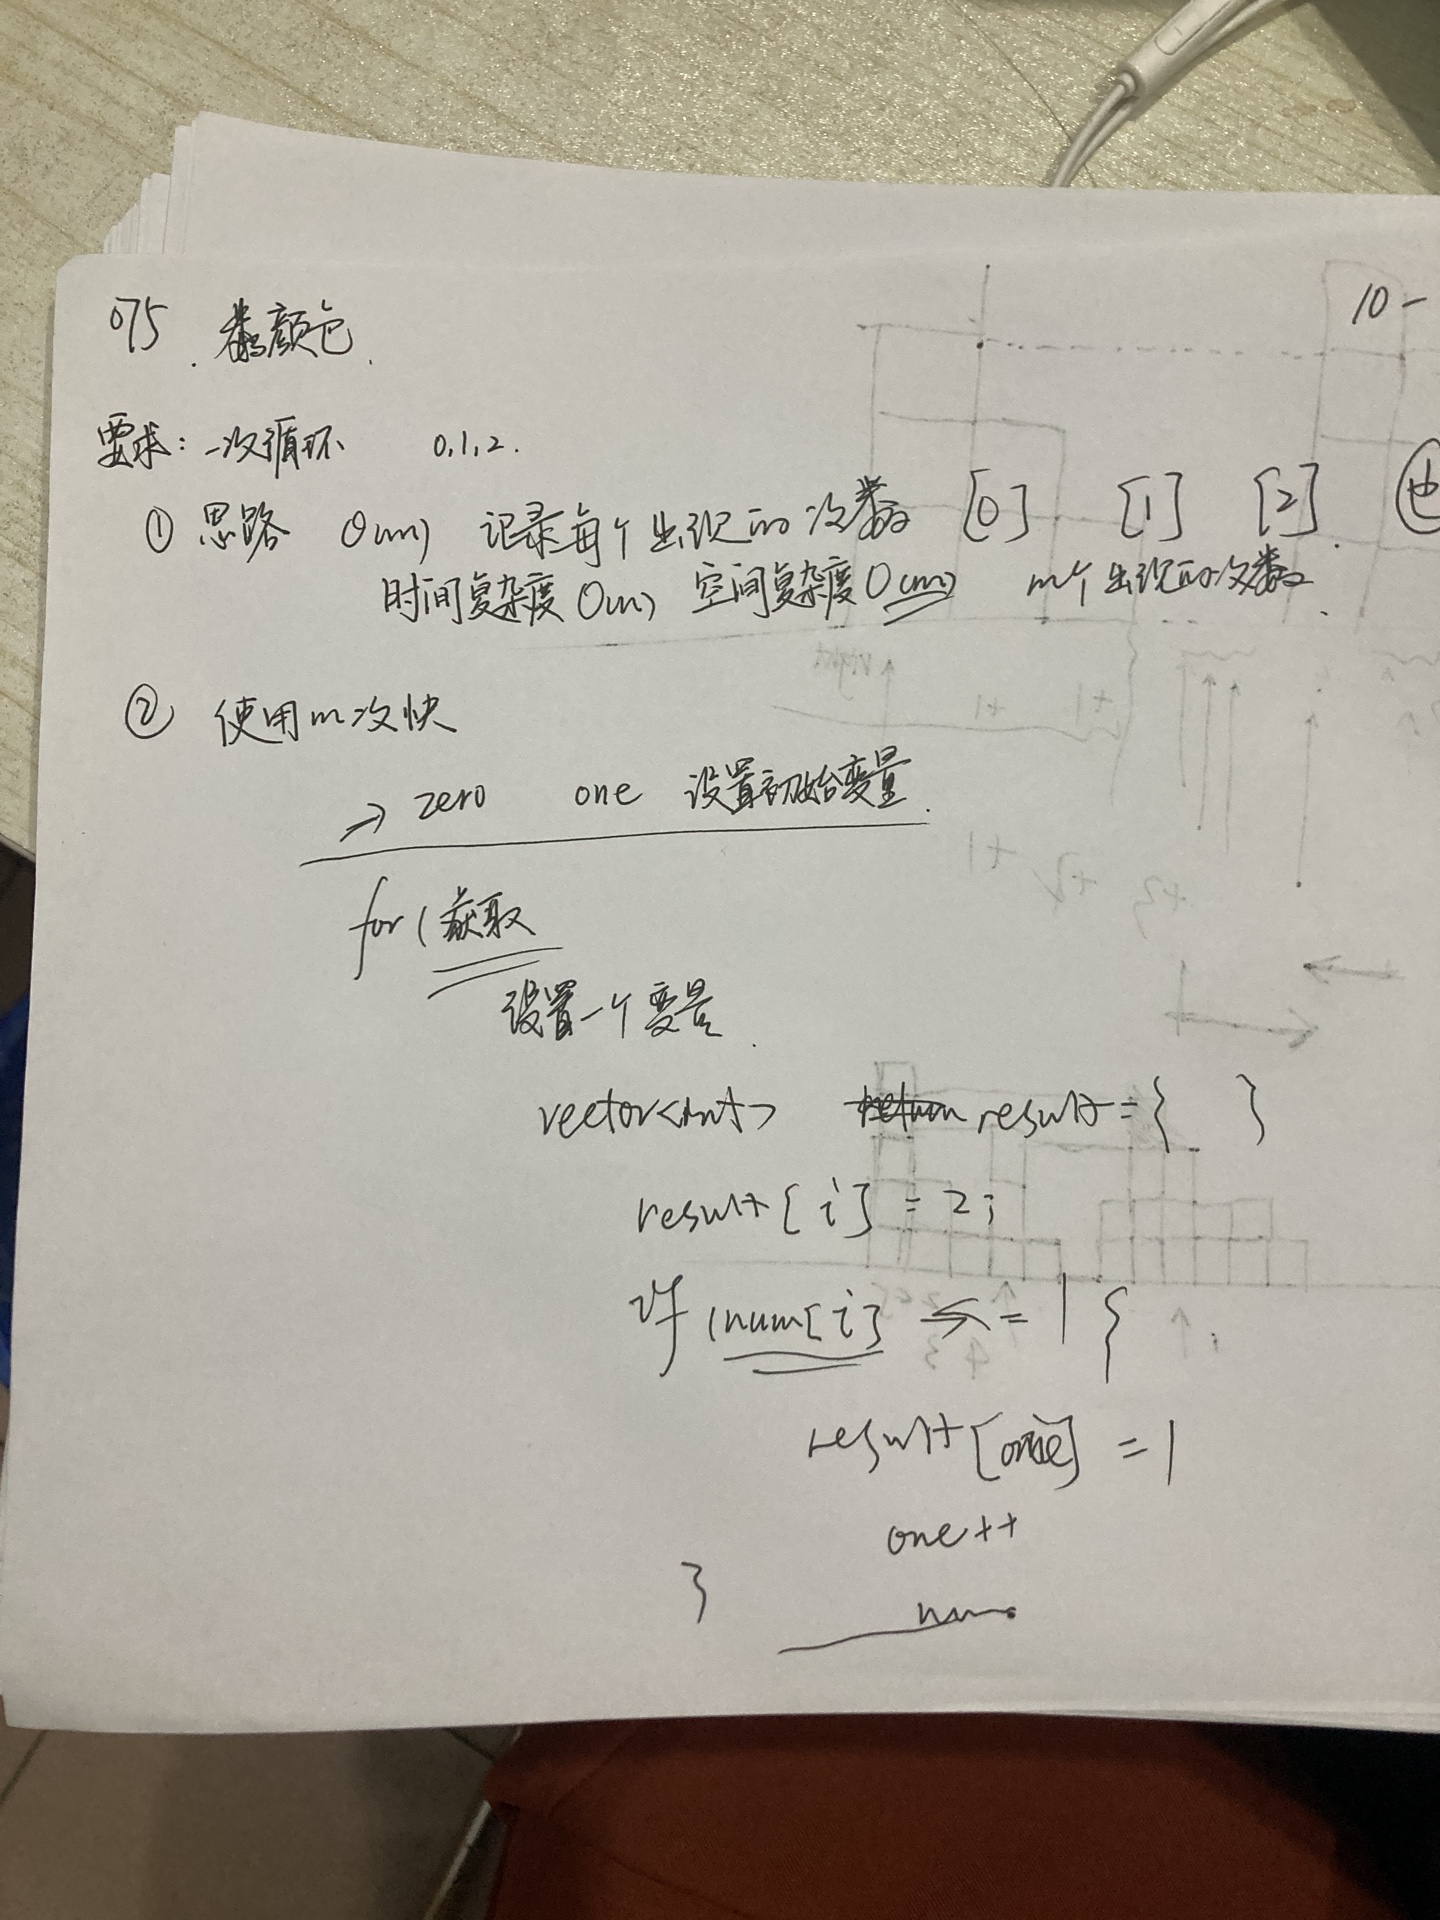 075. 数颜色. 10-
要求：一次循环 0,1,2.
① 思路 O(n) 记录每个出现的次数 [0] [1] [2].
时间复杂度O(n) 空间复杂度O(m) m个出现的次数.
② 使用m次快
→ zero one 设置初始变量.
for ( 获取
设置一个变量.
vector<int> result={ }
result[i] = 2;
if (num[i] <= 1 {
result[one] = 1
one++
}